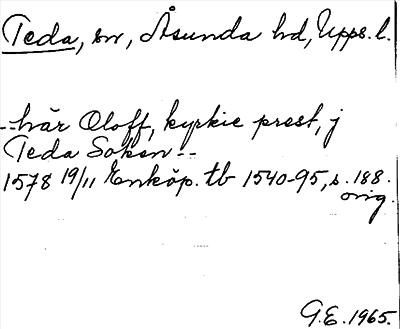 Teda, sn, Åsunda hd, Upps. l.
--här Oloff, kyrkie prest, j
Teda Soken--
1578 19/11 Enköp. tb 1540-95, s. 188.
orig.
G.E. 1965.